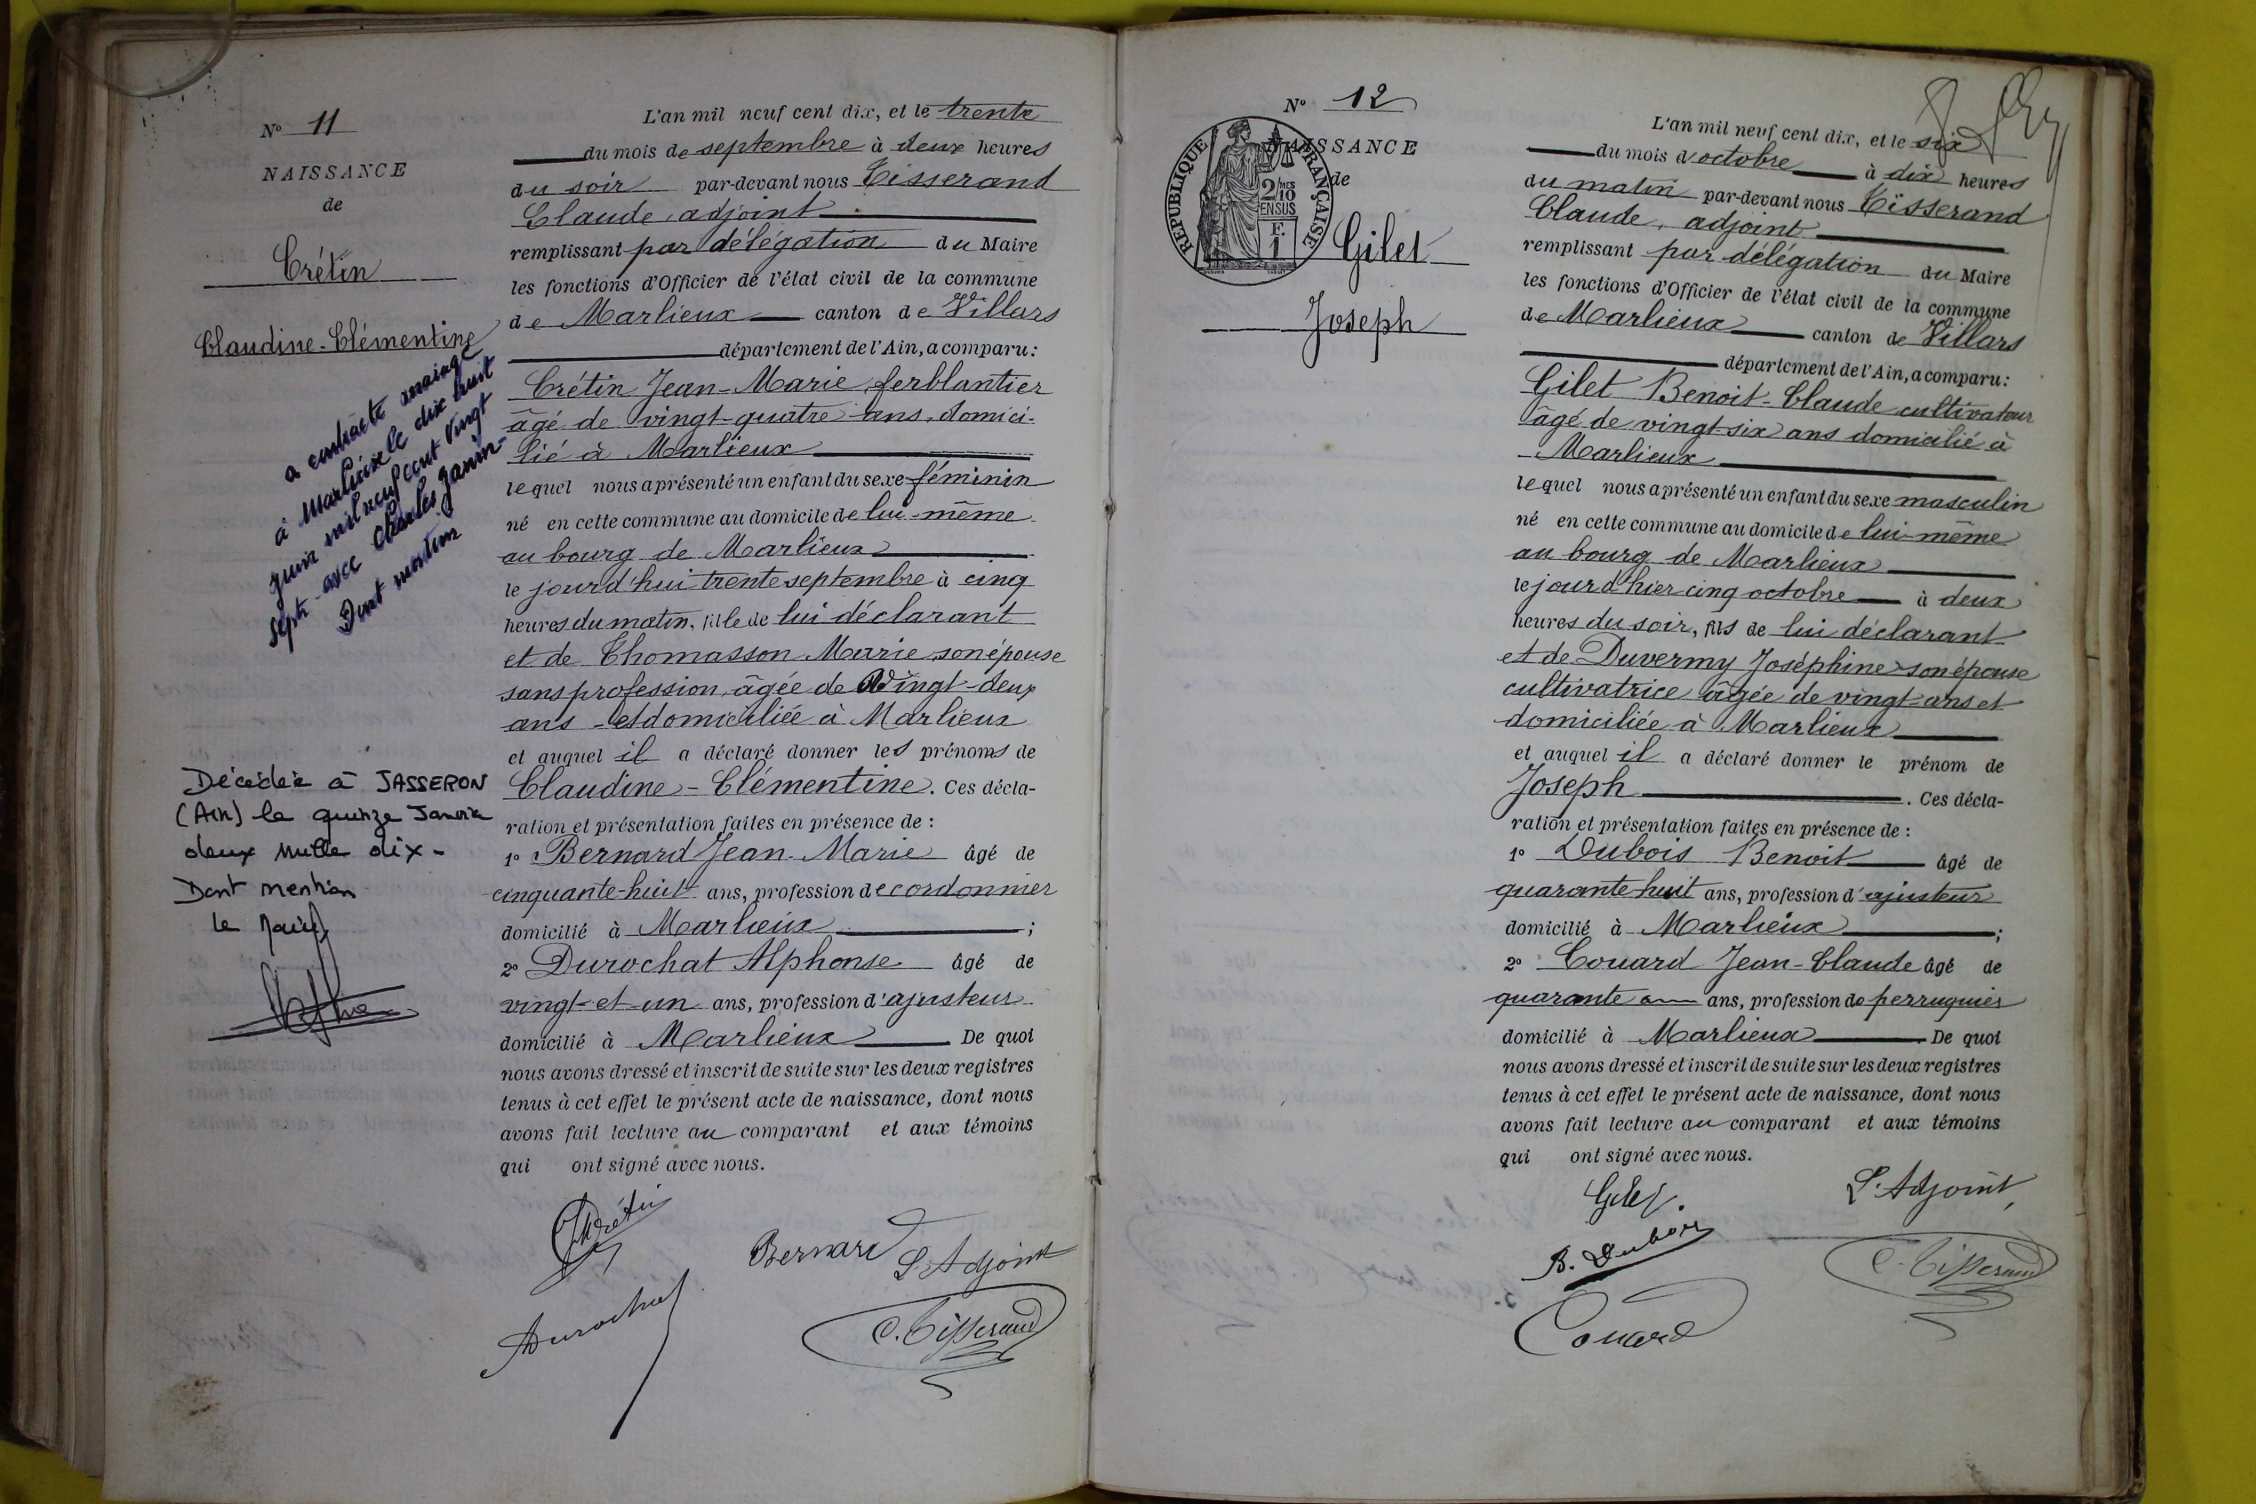 N° 11
NAISSANCE
de
Crétin
Claudine-Clémentine
a contracté mariage
à Marlieux le dix huit
juin mil neuf cent vingt
sept avec Charles Janin-
Dont mention
Décédée à JASSERON
(Ain) le quinze Janvier
deux mille dix -
Dont mention
le Maire
L'an mil neuf cent dix, et le trente
du mois de septembre à deux heures
du soir par-devant nous Tisserand
Claude, adjoint
remplissant par délégation du Maire
les fonctions d'Officier de l'état civil de la commune
de Marlieux canton de Villars
département de l'Ain, a comparu:
Crétin Jean-Marie, ferblantier
âgé de vingt-quatre ans, domici-
lié à Marlieux
lequel nous a présenté un enfant du sexe féminin
né en cette commune au domicile de lui-même
au bourg de Marlieux
le jour d'hui trente septembre à cinq
heures du matin, fille de lui déclarant
et de Thomasson Marie son épouse
sans profession, âgée de vingt-deux
ans et domiciliée à Marlieux
et auquel il a déclaré donner les prénoms de
Claudine-Clémentine. Ces décla-
ration et présentation faites en présence de :
1° Bernard Jean-Marie âgé de
cinquante-huit ans, profession de cordonnier
domicilié à Marlieux ;
2° Durochat Alphonse âgé de
vingt-et-un ans, profession d'ajusteur
domicilié à Marlieux De quoi
nous avons dressé et inscrit de suite sur les deux registres
tenus à cet effet le présent acte de naissance, dont nous
avons fait lecture au comparant et aux témoins
qui ont signé avec nous.
Crétin
Bernard
L'Adjoint
Durochat
C. Tisserand
N° 12
NAISSANCE
de
REPUBLIQUE FRANÇAISE
2/10 MES
EN SUS
F.
1
Gilet
Joseph
L'an mil neuf cent dix, et le six
du mois d'octobre à dix heures
du matin par-devant nous Tisserand
Claude, adjoint
remplissant par délégation du Maire
les fonctions d'Officier de l'état civil de la commune
de Marlieux canton de Villars
département de l'Ain, a comparu:
Gilet Benoit-Claude cultivateur
âgé de vingt-six ans domicilié à
Marlieux
lequel nous a présenté un enfant du sexe masculin
né en cette commune au domicile de lui-même
au bourg de Marlieux
le jour d'hier cinq octobre à deux
heures du soir, fils de lui déclarant
et de Duvermy Joséphine son épouse
cultivatrice âgée de vingt ans et
domiciliée à Marlieux
et auquel il a déclaré donner le prénom de
Joseph. Ces décla-
ration et présentation faites en présence de :
1° Dubois Benoit âgé de
quarante-huit ans, profession d'ajusteur
domicilié à Marlieux ;
2° Couard Jean-Claude âgé de
quarante ans, profession de perruquier
domicilié à Marlieux De quoi
nous avons dressé et inscrit de suite sur les deux registres
tenus à cet effet le présent acte de naissance, dont nous
avons fait lecture au comparant et aux témoins
qui ont signé avec nous.
Gilet.
L'Adjoint,
B. Dubois
C. Tisserand
Couard